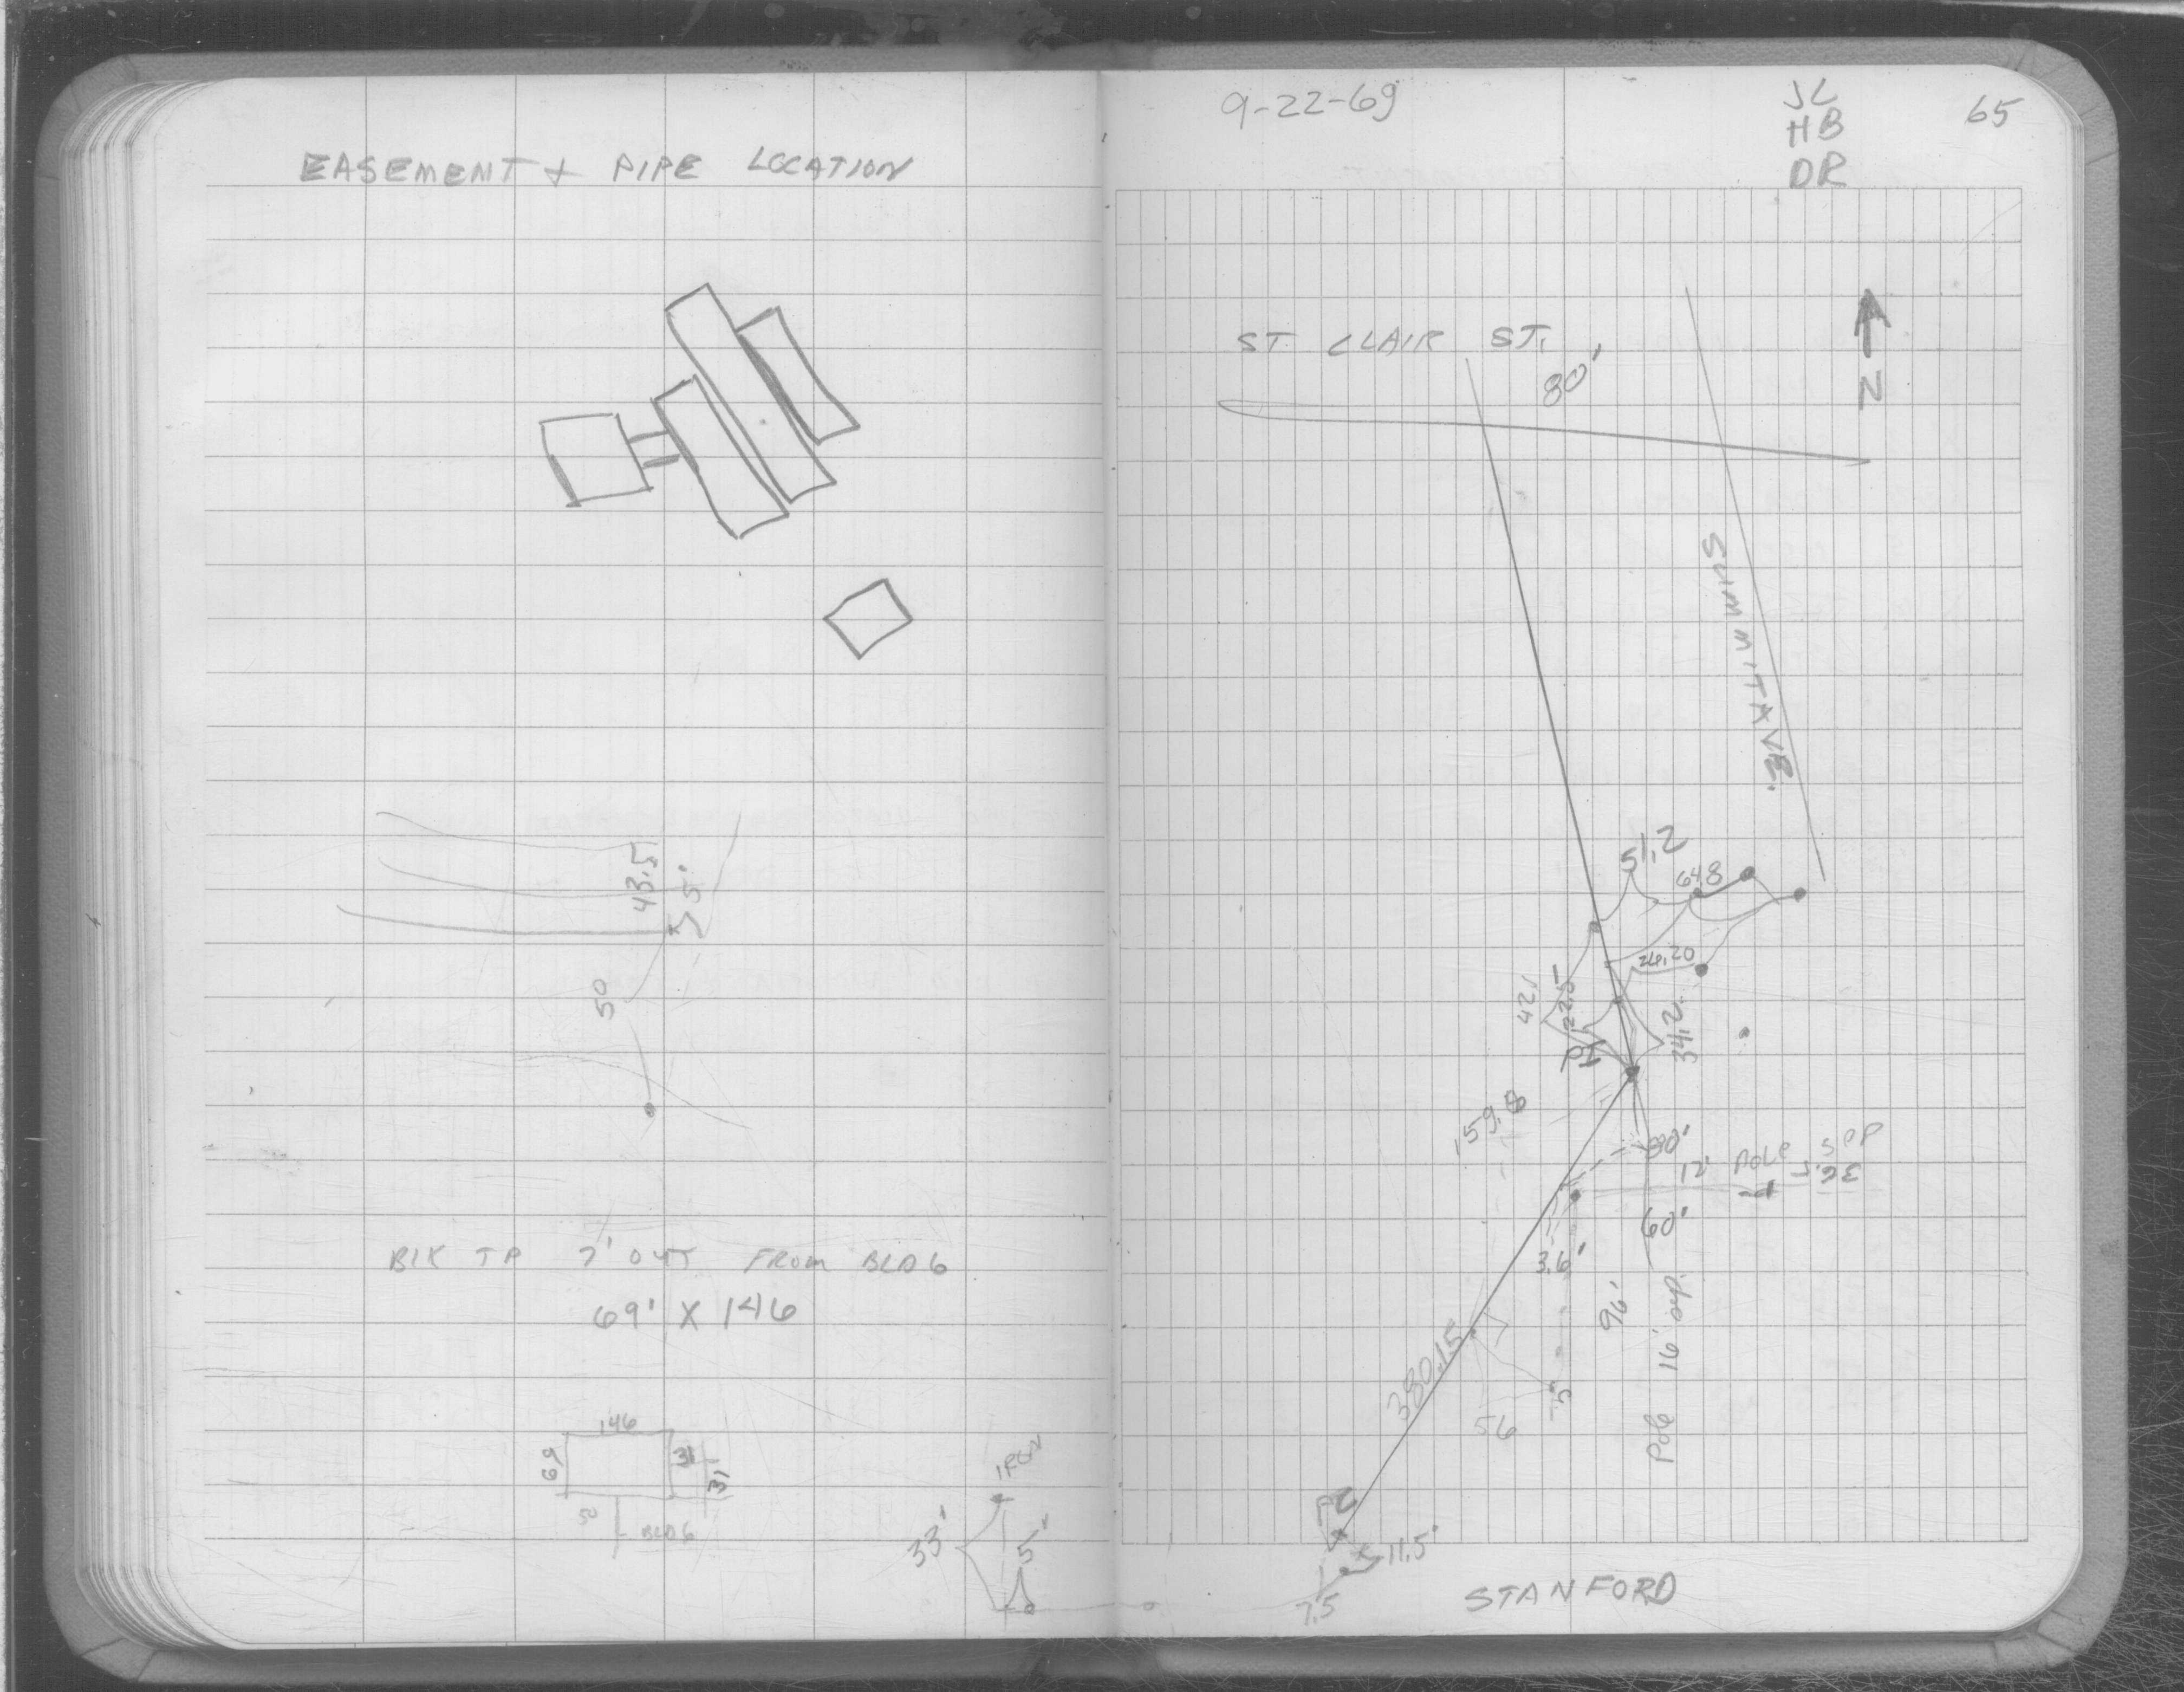 EASEMENT + PIPE LOCATION
43.5
5'
50
BLK TP 7' OUT FROM BLDG
69' X 146
146
69
31
31
50
BLDG
IRON
33'
5'
9-22-69
JL
HB
DR
65
ST. CLAIR ST.
80'
N
SUMMIT AVE.
51.2
64.8
26.20
42'
22.5
PI
34.2
159.8
80'
12' POLE
60'
3.6'
96'
Pole 16' sop.
380.15
56
PC
11.5'
7.5
STANFORD